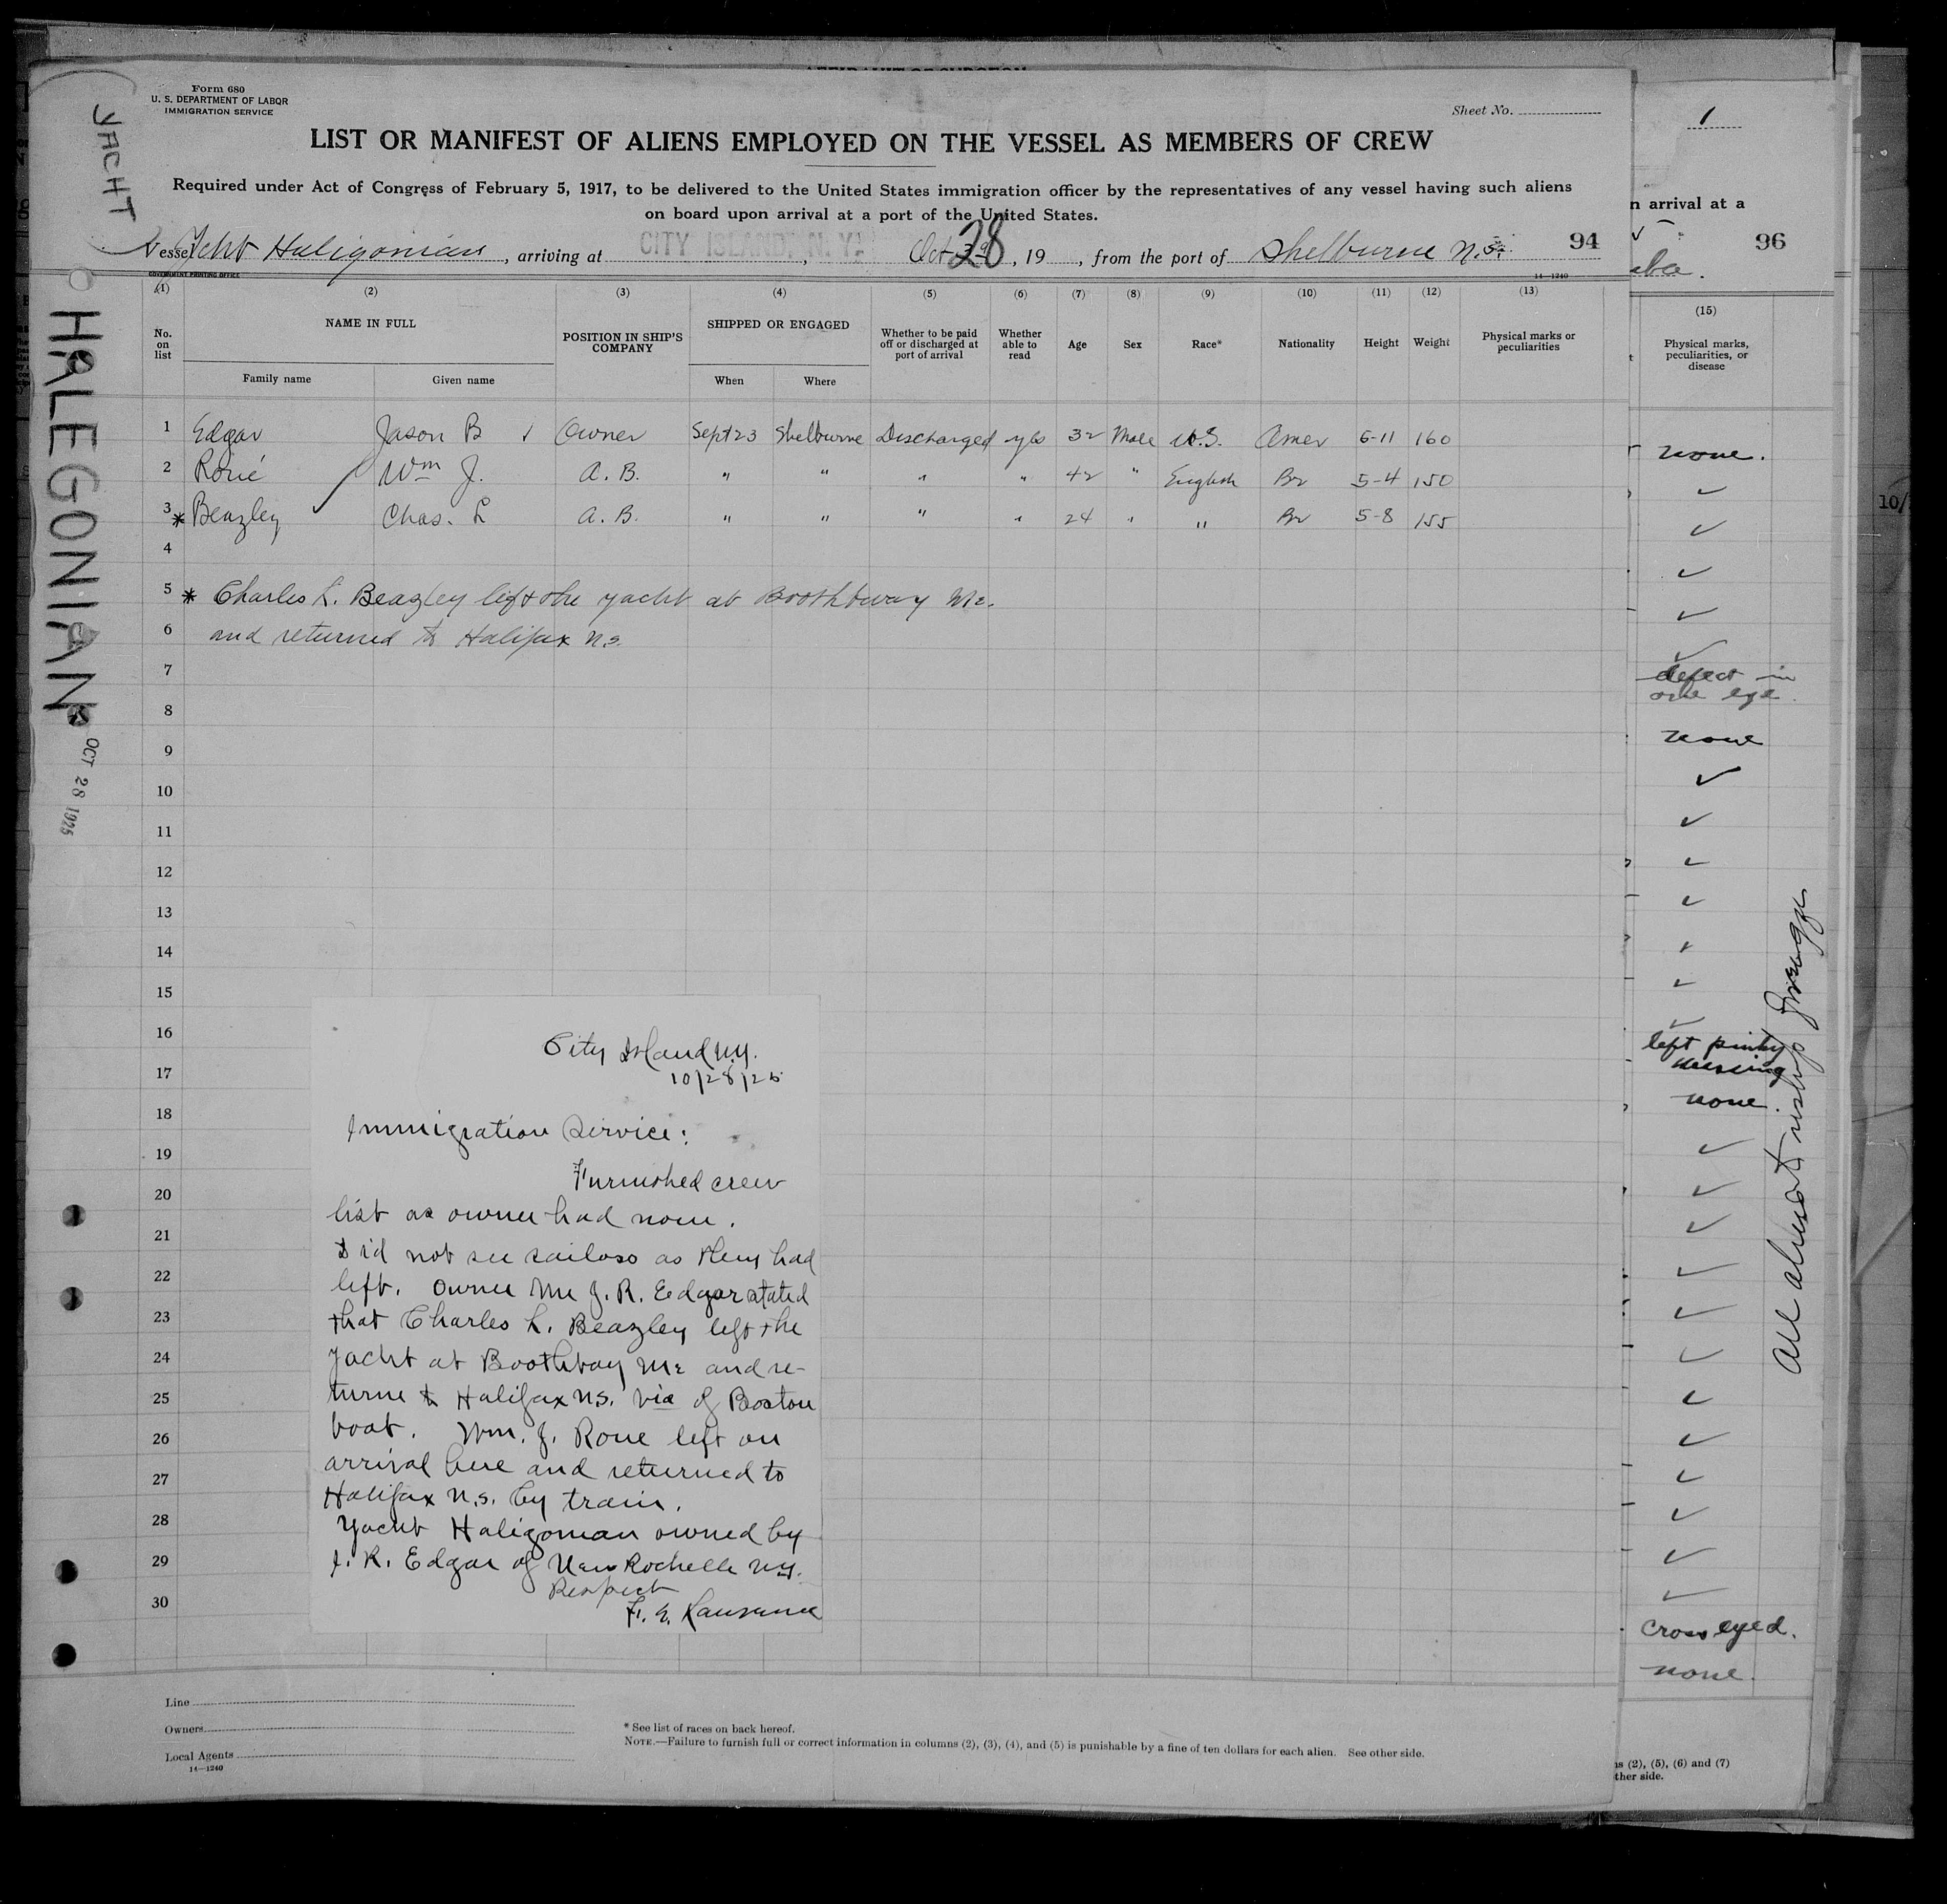 Form 680
U. S. DEPARTMENT OF LABOR
IMMIGRATION SERVICE
Sheet No.
LIST OR MANIFEST OF ALIENS EMPLOYED ON THE VESSEL AS MEMBERS OF CREW
Required under Act of Congress of February 5, 1917, to be delivered to the United States immigration officer by the representatives of any vessel having such aliens
on board upon arrival at a port of the United States.
Vessel Yacht Haligonian, arriving at CITY ISLAND, N. Y., Oct 28, 19 , from the port of Shelburne N.S. 94
GOVERNMENT PRINTING OFFICE
14—1240
(1) (2) (3) (4) (5) (6) (7) (8) (9) (10) (11) (12) (13)
No. on list NAME IN FULL POSITION IN SHIP'S COMPANY SHIPPED OR ENGAGED Whether to be paid off or discharged at port of arrival Whether able to read Age Sex Race* Nationality Height Weight Physical marks or peculiarities
Family name Given name When Where
1 Edgar Jason B Owner Sept 23 Shelburne Discharged yes 32 Male U.S. Amer 6-11 160
2 Roué Wm J. A. B. " " " " 42 " English Br 5-4 150
3 * Beazley Chas. L A. B. " " " " 24 " " Br 5-8 155
4
5 * Charles L. Beazley left the yacht at Boothbway Me.
6 and returned to Halifax N.S.
7
8
9
10
11
12
13
14
15
16
17
18
19
20
21
22
23
24
25
26
27
28
29
30
City Island N.Y.
10/28/25
Immigration Service:
Furnished crew
list as owner had none.
Did not see sailors as they had
left. Owner Mr J. R. Edgar stated
that Charles L. Beazley left the
yacht at Boothbay Me and re-
turne to Halifax N.S. via of Boston
boat. Wm. J. Roue left on
arrival here and returned to
Halifax N.S. by train.
Yacht Haligonian owned by
J. R. Edgar of New Rochelle N.Y.
Respect
Line
Owners
Local Agents
14—1240
* See list of races on back hereof.
NOTE.—Failure to furnish full or correct information in columns (2), (3), (4), and (5) is punishable by a fine of ten dollars for each alien. See other side.
YACHT
HALEGONIAN
OCT 28 1925
1
n arrival at a
96
(15)
Physical marks,
peculiarities, or
disease
none.
defect in
one eye.
none
left pinky
missing
none.
cross eyed.
none.
ns (2), (5), (6) and (7)
ther side.
10/